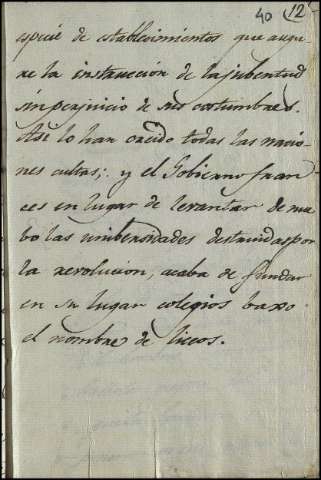 40 12
especie de establecimientos que asegu
re la instrucción de la jubentud
sin perjuicio de sus costumbres.
Asi lo han creido todas las nacio
nes cultas; y el Gobierno fran
ces en lugar de levantar de nue
bo las unibersidades destruidas por
la revolucion, acaba de fundar
en su lugar colegios baxo
el nombre de liceos.